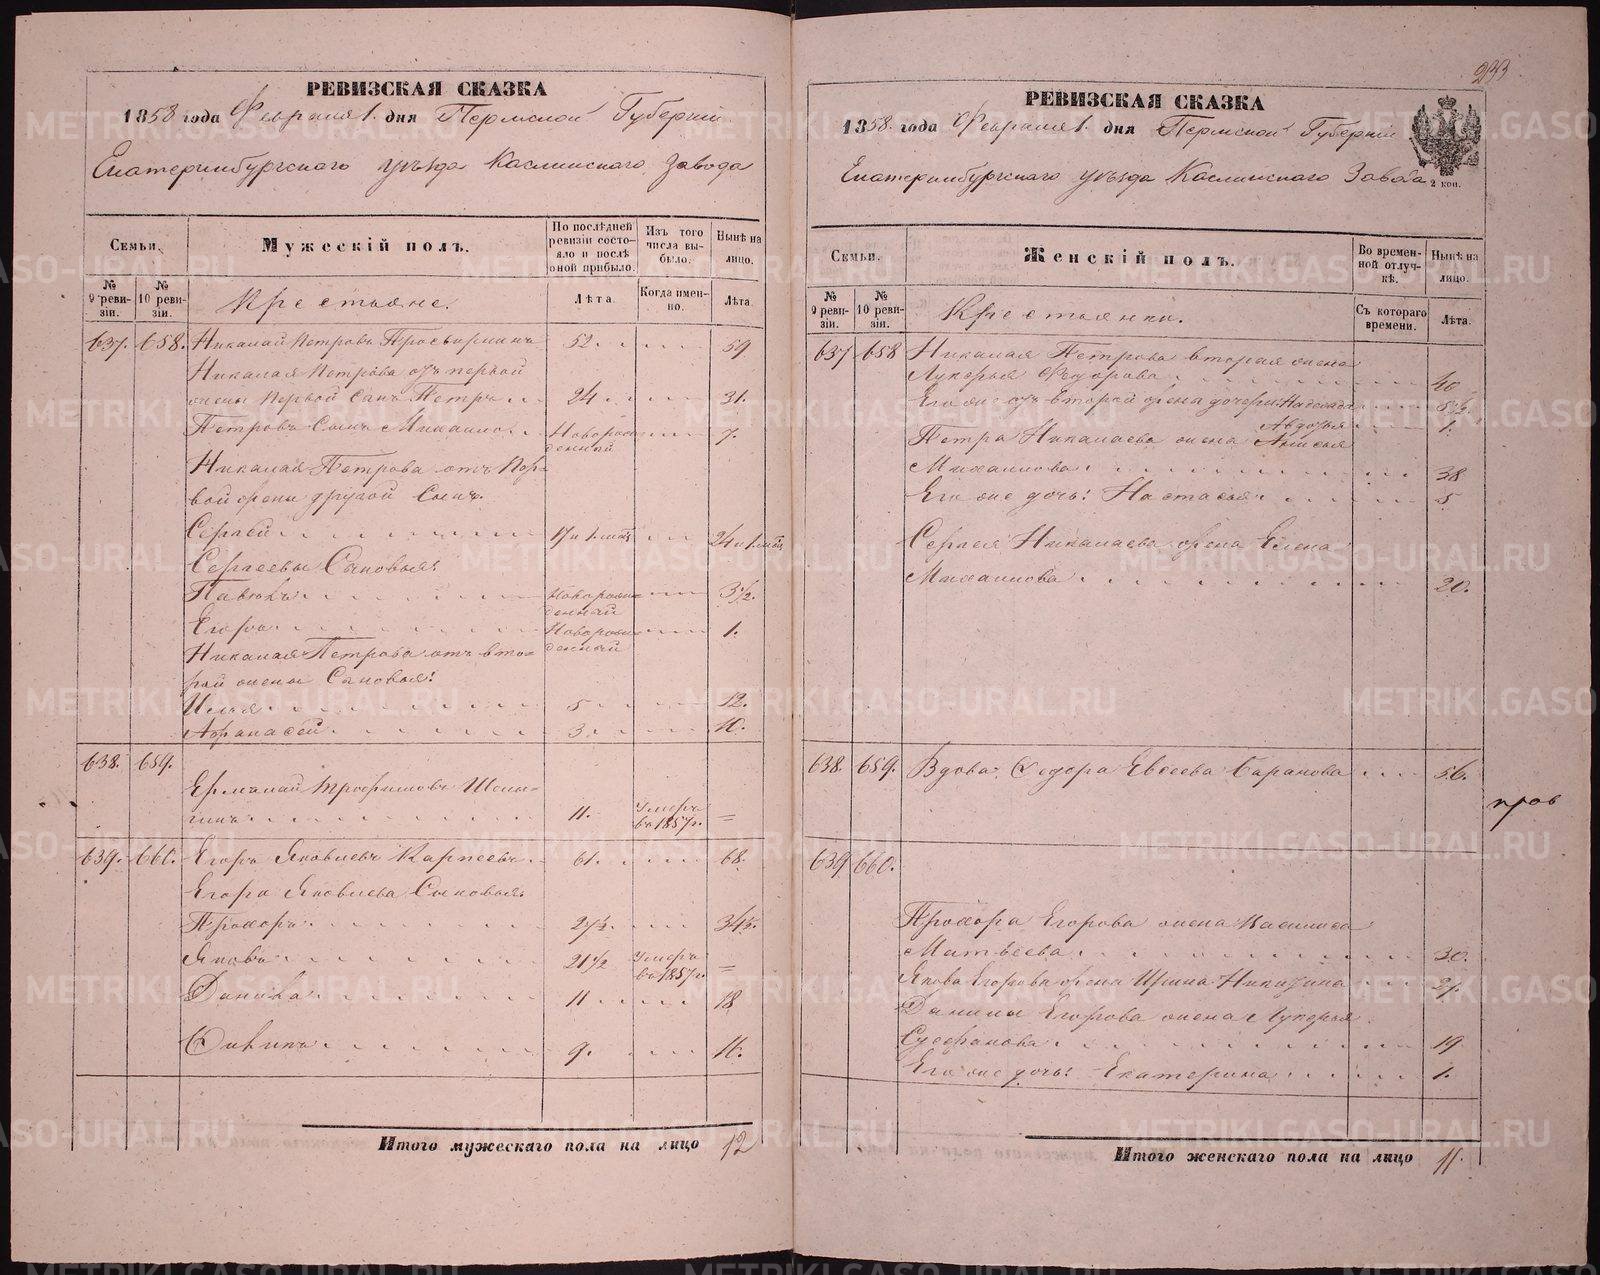 РЕВИЗСКАЯ СКАЗКА
1858 года Февраля 1. дня Пермской Губерніи
Екатеринбургскаго уѣзда Каслинскаго Завода
Семьи.
Мужескій полъ.
По послѣдней ревизіи состояло и послѣ оной прибыло.
Изъ того числа выбыло.
Нынѣ на лицо.
№ 9 ревизіи.
№ 10 ревизіи.
Крестьяне.
Лѣта.
Когда именно.
Лѣта.
637. 658. Николай Петровъ 52. 59
Николая Петрова отъ первой
жены первой сынъ Петръ 24. 31.
Петровъ сынъ Михаило Новорожденный 7.
Николая Петрова отъ пер-
вой жены другой сынъ.
Сергѣй 17 и 1 мѣс 24 и 1 мѣс
Сергеевы сыновья:
Новорожденный 3 1/2.
Егоръ Новорожденный 1.
Николая Петрова отъ вто-
рой жены сыновья:
Илья 5 12.
Афанасей 3. 10.
638. 659.
Ермолай Трофимовъ
11. Умеръ въ 1857 г. =
639. 660. Егоръ Яковлевъ Карпеевъ 61. 68.
Егора Яковлева сыновья
Прохоръ
Яковъ 21 1/2 Умеръ въ 1857 г. =
Данила 11 18
9. 16.
Итого мужескаго пола на лицо 12
233
РЕВИЗСКАЯ СКАЗКА
1858. года Февраля 1. дня Пермской Губерніи
Екатеринбургскаго уѣзда Каслинскаго Завода
2 коп.
Семьи.
Женскій полъ.
Во временной отлучкѣ.
Нынѣ на лицо.
№ 9 ревизіи.
№ 10 ревизіи.
Крестьянки.
Съ котораго времени.
Лѣта.
637 658 Николая Петрова вторая жена
Лукерья Федорова 40
Его же отъ второй жены дочери: Надежда 5 1/2.
Авдотья 1.
Петра Николаева жена Анисья
Михайлова 38
Его же дочь: Настасья 5
Сергея Николаева жена Елена
Михаилова 20.
638. 659. Вдова Федора Евсеева Баранова 56.
пров
639 660.
Прохора Егорова жена Василиса
Матвѣева 30.
Якова Егорова жена Ирина Никитина 27.
Данилы Егорова жена Лукерья
19
Его же дочь: Екатерина 1.
Итого женскаго пола на лицо 11.
METRIKI.GASO-URAL.RU